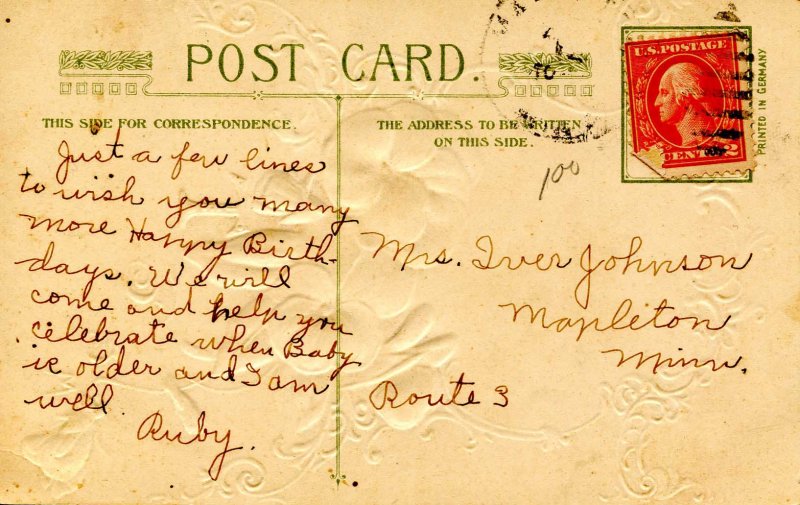 POST CARD.
THIS SIDE FOR CORRESPONDENCE.
THE ADDRESS TO BE WRITTEN
ON THIS SIDE.
U.S. POSTAGE
CENT 2
PRINTED IN GERMANY
100
Just a few lines
to wish you many
more Happy Birth-
days. We will
come and help you
celebrate when Baby
is older and I am
well.
Ruby.
Mrs. Iver Johnson
Mapleton
Minn.
Route 3